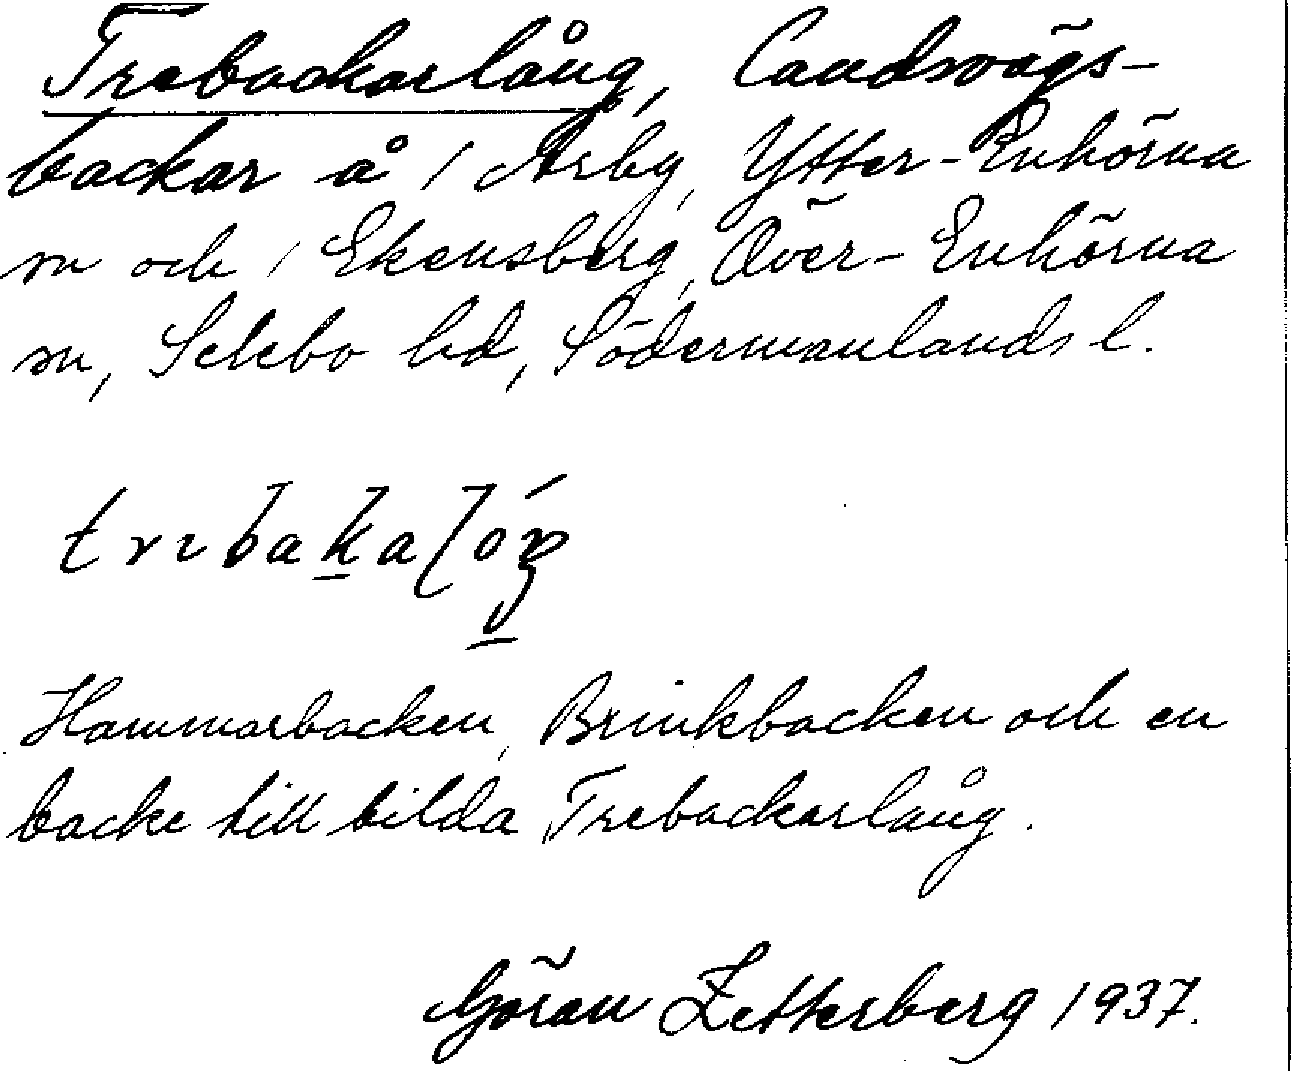 Trebackarlång, Landsvägs-
backar å 1 Årby, Ytter-Enhörna
sn och 1 Ekensberg, Över-Enhörna
sn, Selebo hd, Södermanlands l.
Hammarbacken, Brinkbacken och en
backe till bilda Trebackarlång.
Göran Zetterberg 1937.